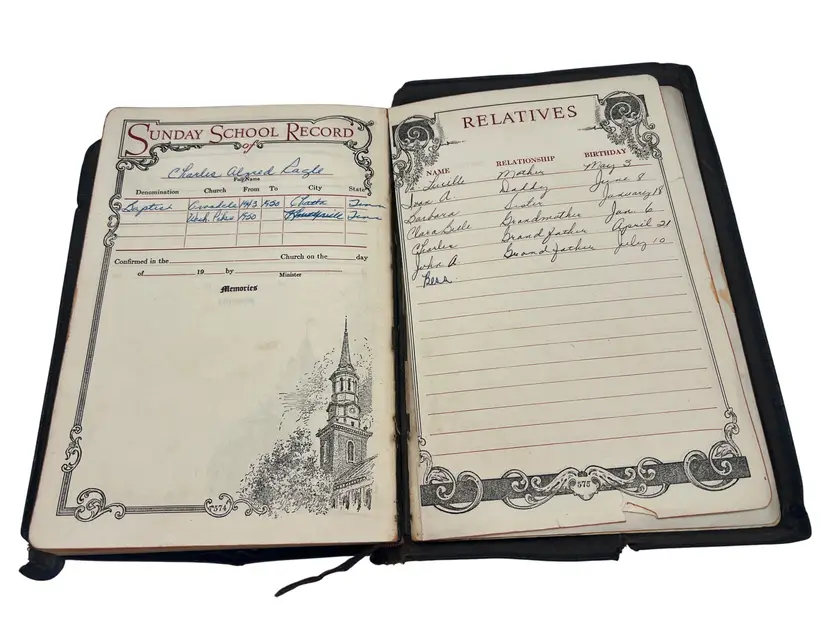 SUNDAY SCHOOL RECORD
of
Charles Alfred Eagle
Full Name
Denomination Church From To City State
Baptist 1943 1950 Chatta Tenn
1950 Tenn
Confirmed in the Church on the day
of 19 by
Minister
Memories
574
RELATIVES
NAME RELATIONSHIP BIRTHDAY
Lucille Mother May 3
Ivan A. Daddy June 8
Barbara Sister January 18
Clara Belle Grandmother Jan. 6
Charles Grandfather April 21
John A Grandfather July 10
Bess
575